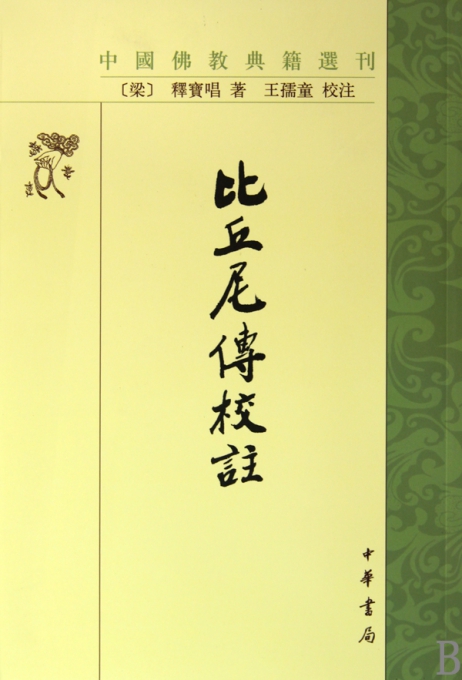 中國佛教典籍選刊
〔梁〕 釋寶唱 著 王孺童 校注
比丘尼傳校註
中華書局
B